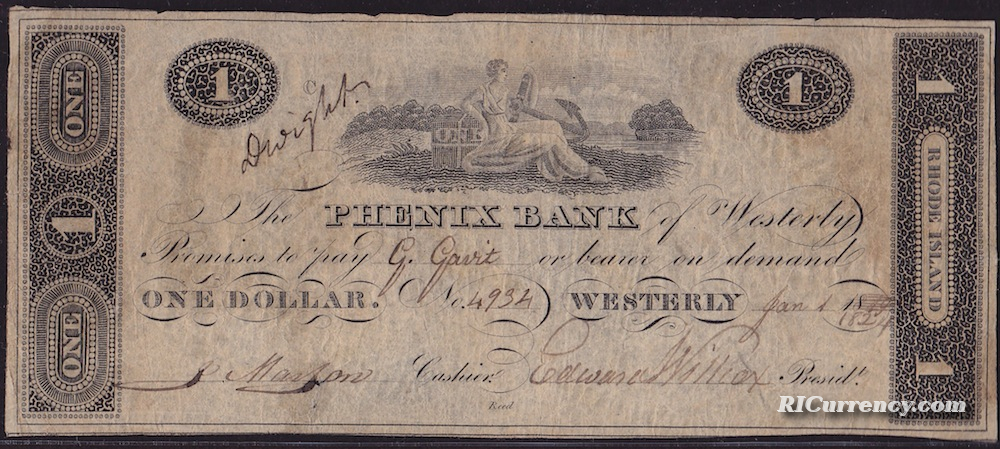 1 1
ONE
1
ONE
C
Dwight.
ONE
The PHENIX BANK of Westerly
Promises to pay G. Gavit or bearer on demand
ONE DOLLAR. No. 4934 WESTERLY Jan 1 18
1824
Cashier. Edward Wilcox Presidt.
Reed
1
RHODE ISLAND
1
RICurrency.com